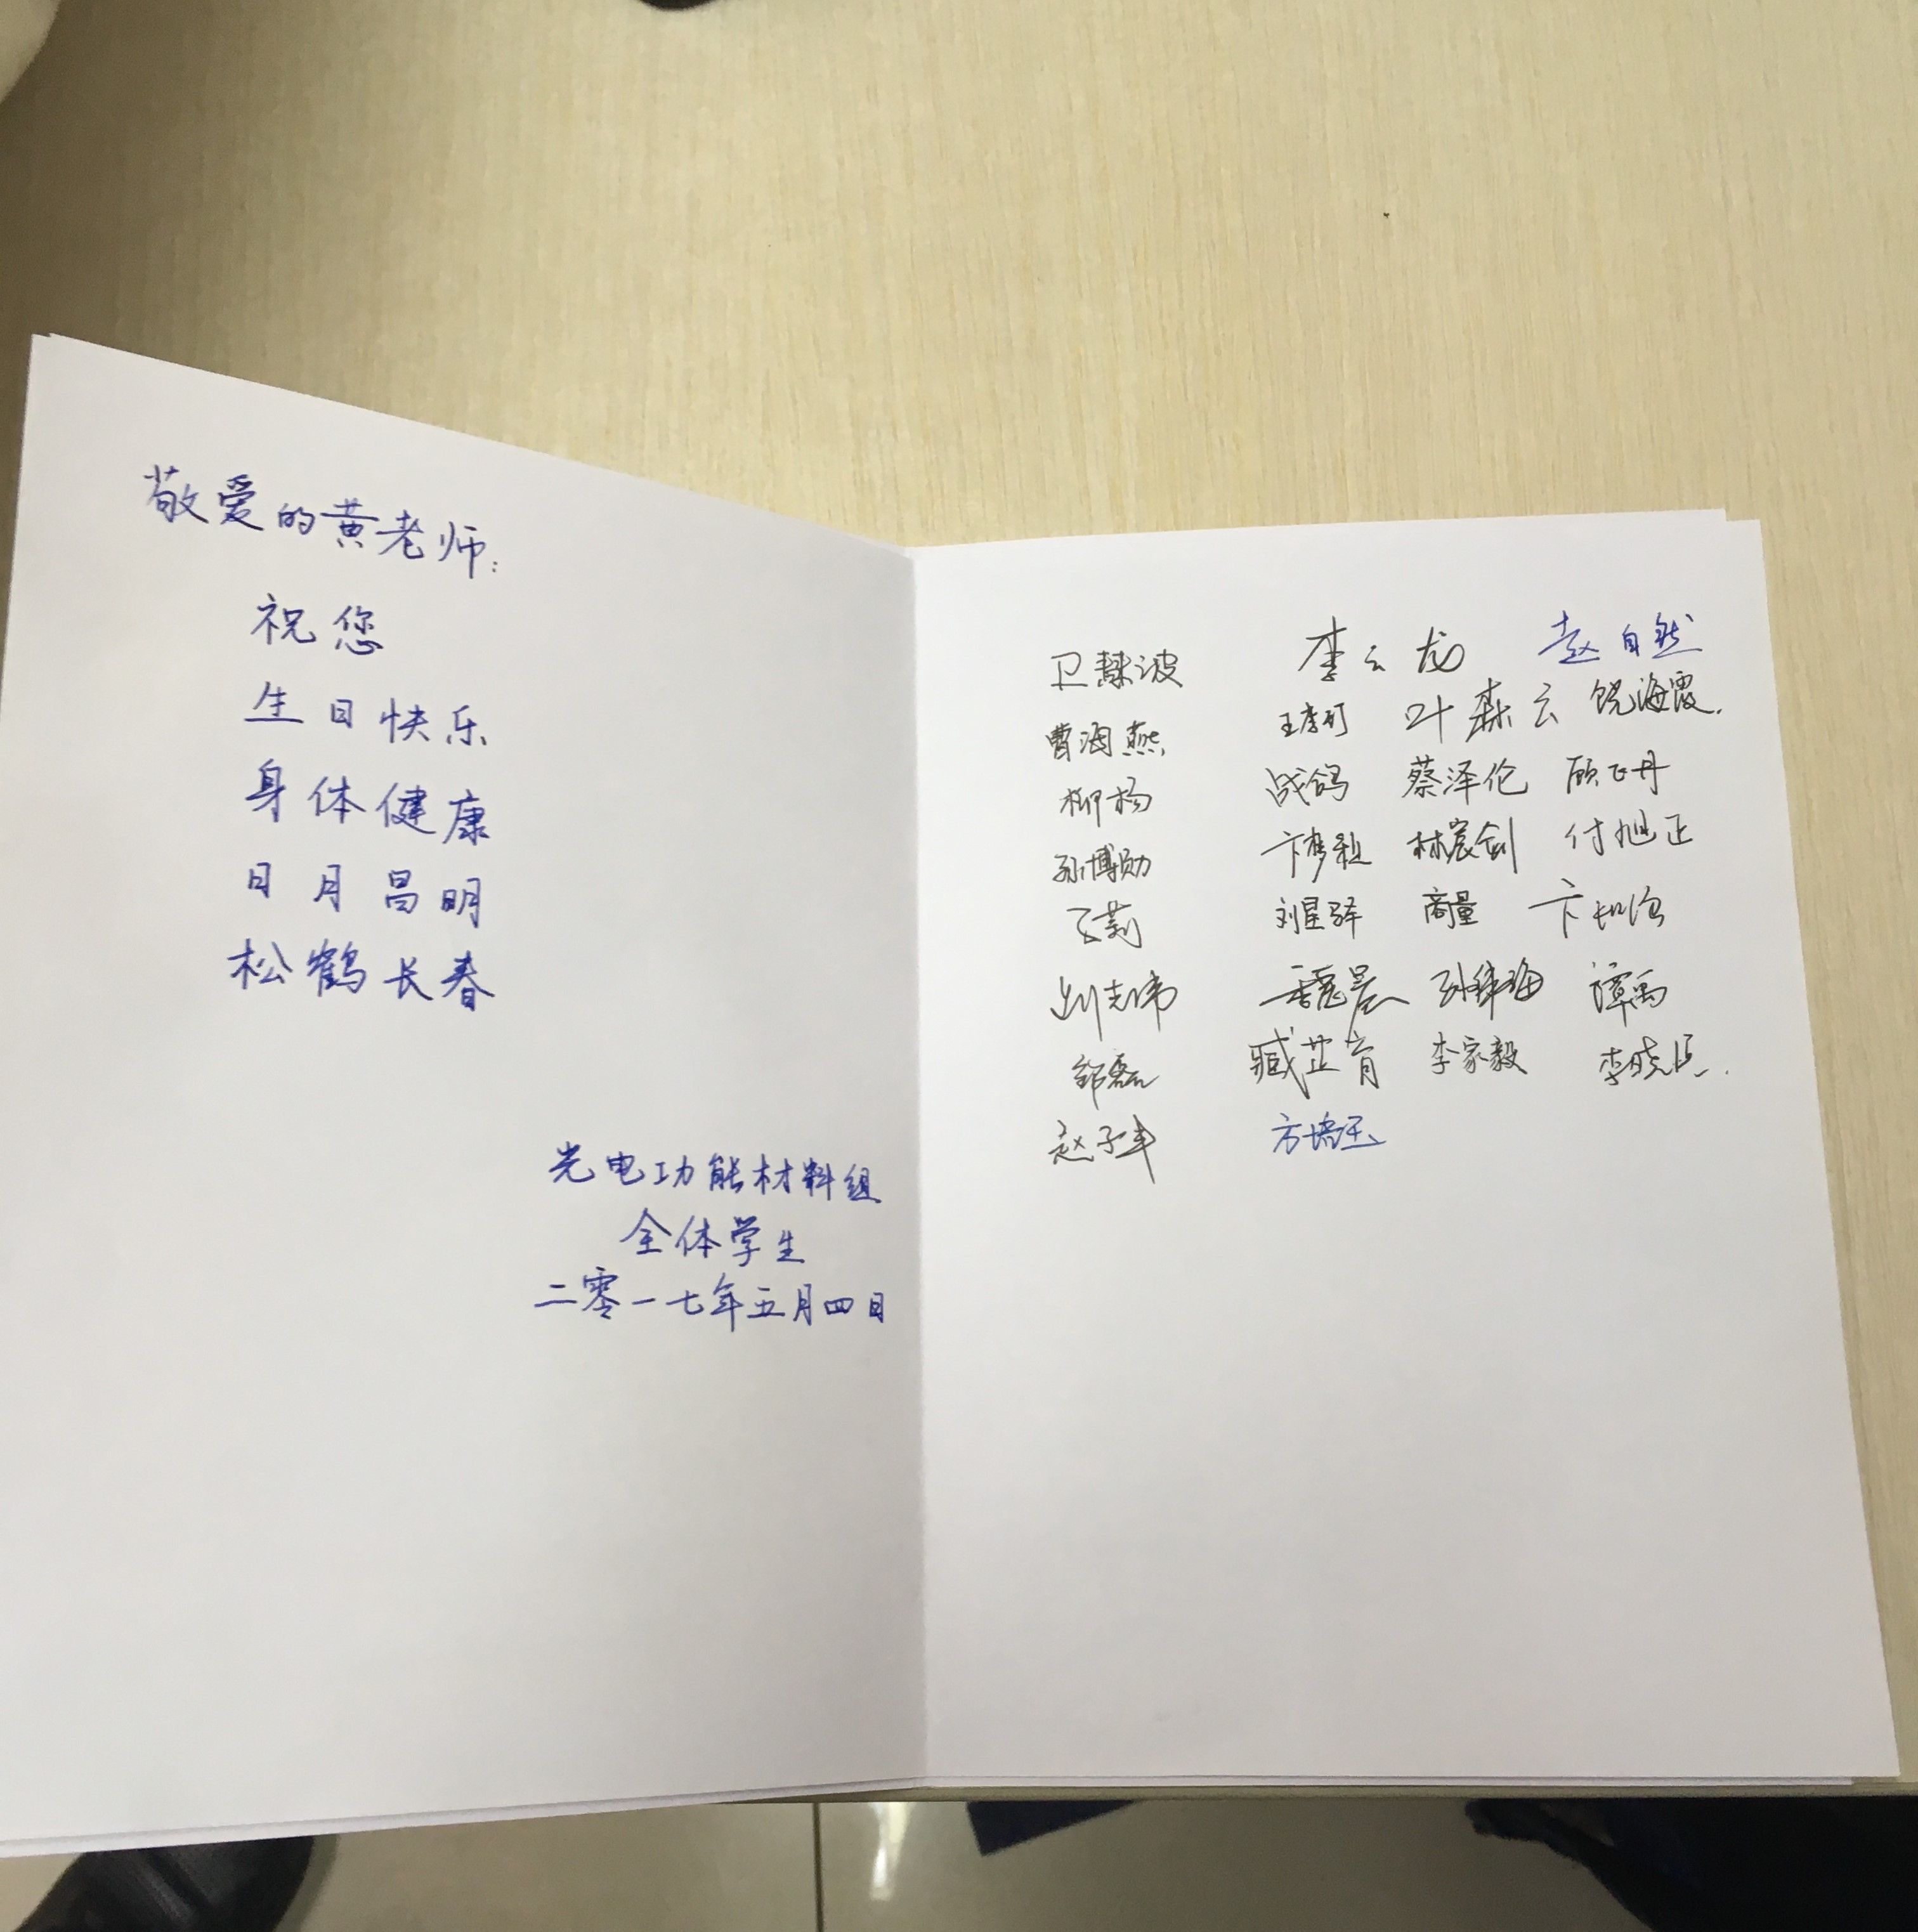 敬爱的黄老师:
祝您
生日快乐
身体健康
日月昌明
松鹤长春
光电功能材料组
全体学生
二零一七年五月四日
卫慧波 李云龙 赵自然
曹海燕 王孝可 叶森云 饶海霞.
柳杨 战鸽 蔡泽伦 顾飞丹
孙博勋 卞梦程 林宸剑 付旭正
刘星驿 商量
刘志伟 魏晨 谭禹
邹磊 臧芷育 李家毅
赵子丰